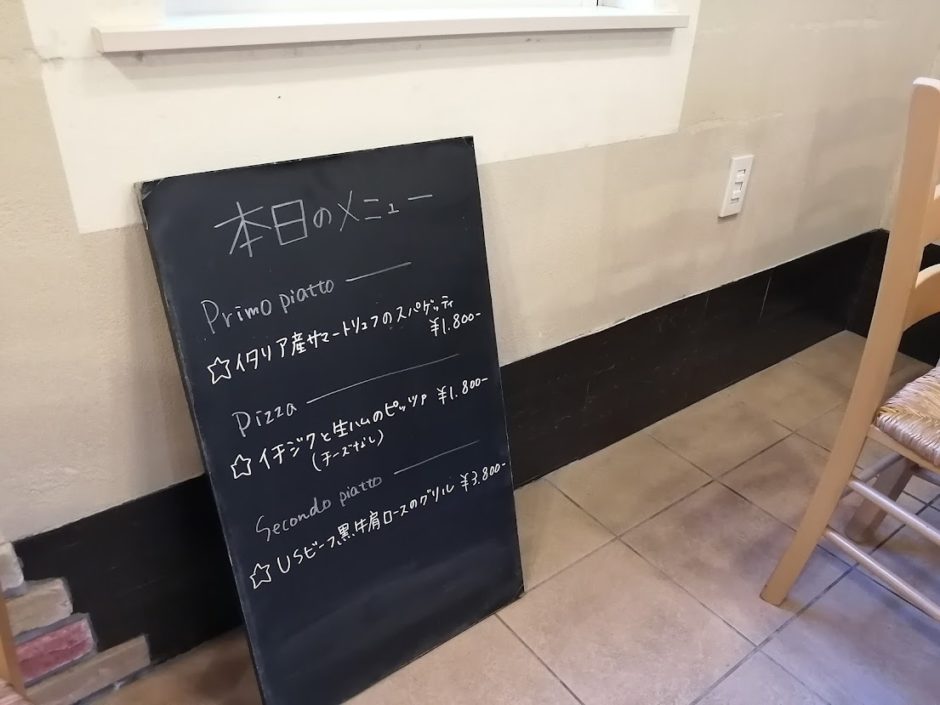 本日のメニュー
Primo piatto
☆イタリア産サマートリュフのスパゲッティ
¥1.800-
Pizza
☆イチジクと生ハムのピッツァ ¥1.800-
(チーズなし)
Secondo piatto
☆USビーフ黒牛肩ロースのグリル ¥3.800-